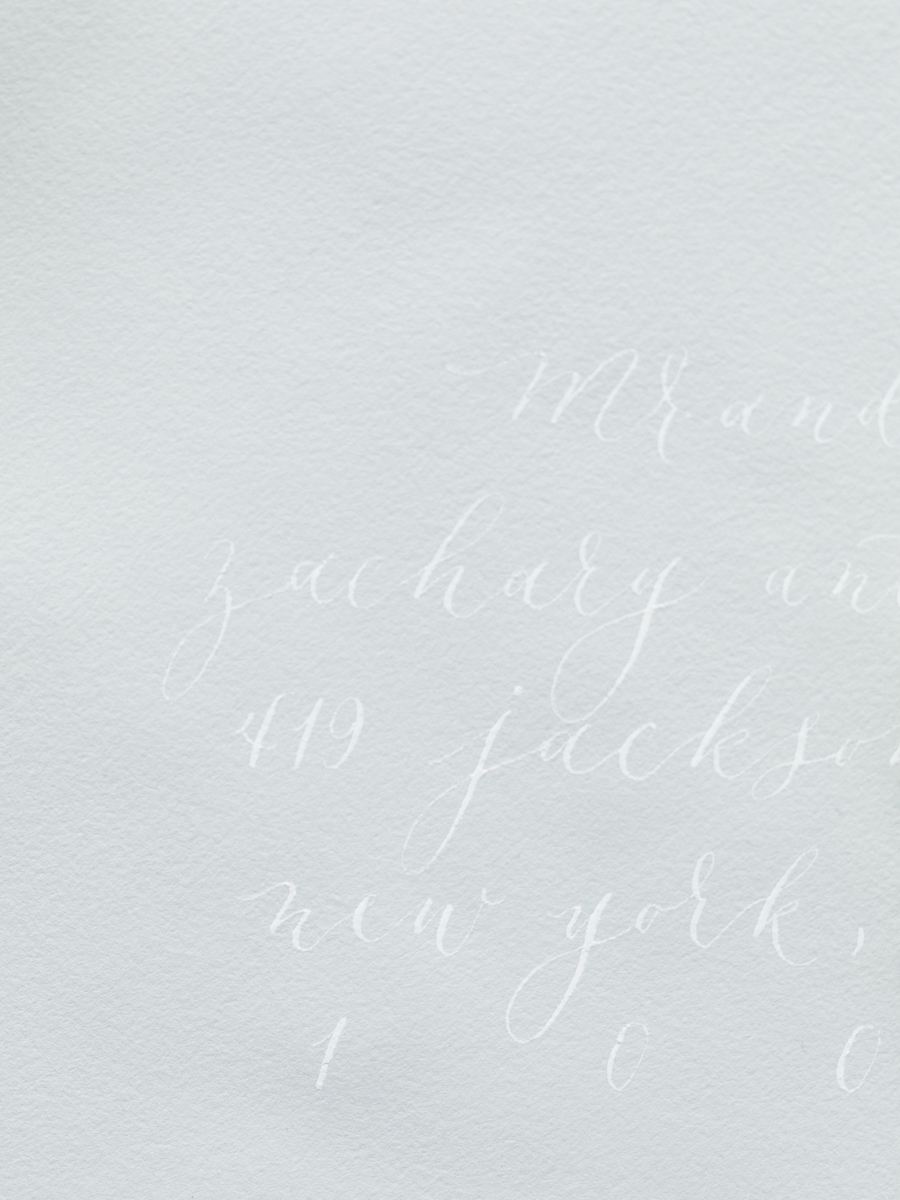 Mr and
zachary an
419 jackson
new york,
1 0 0